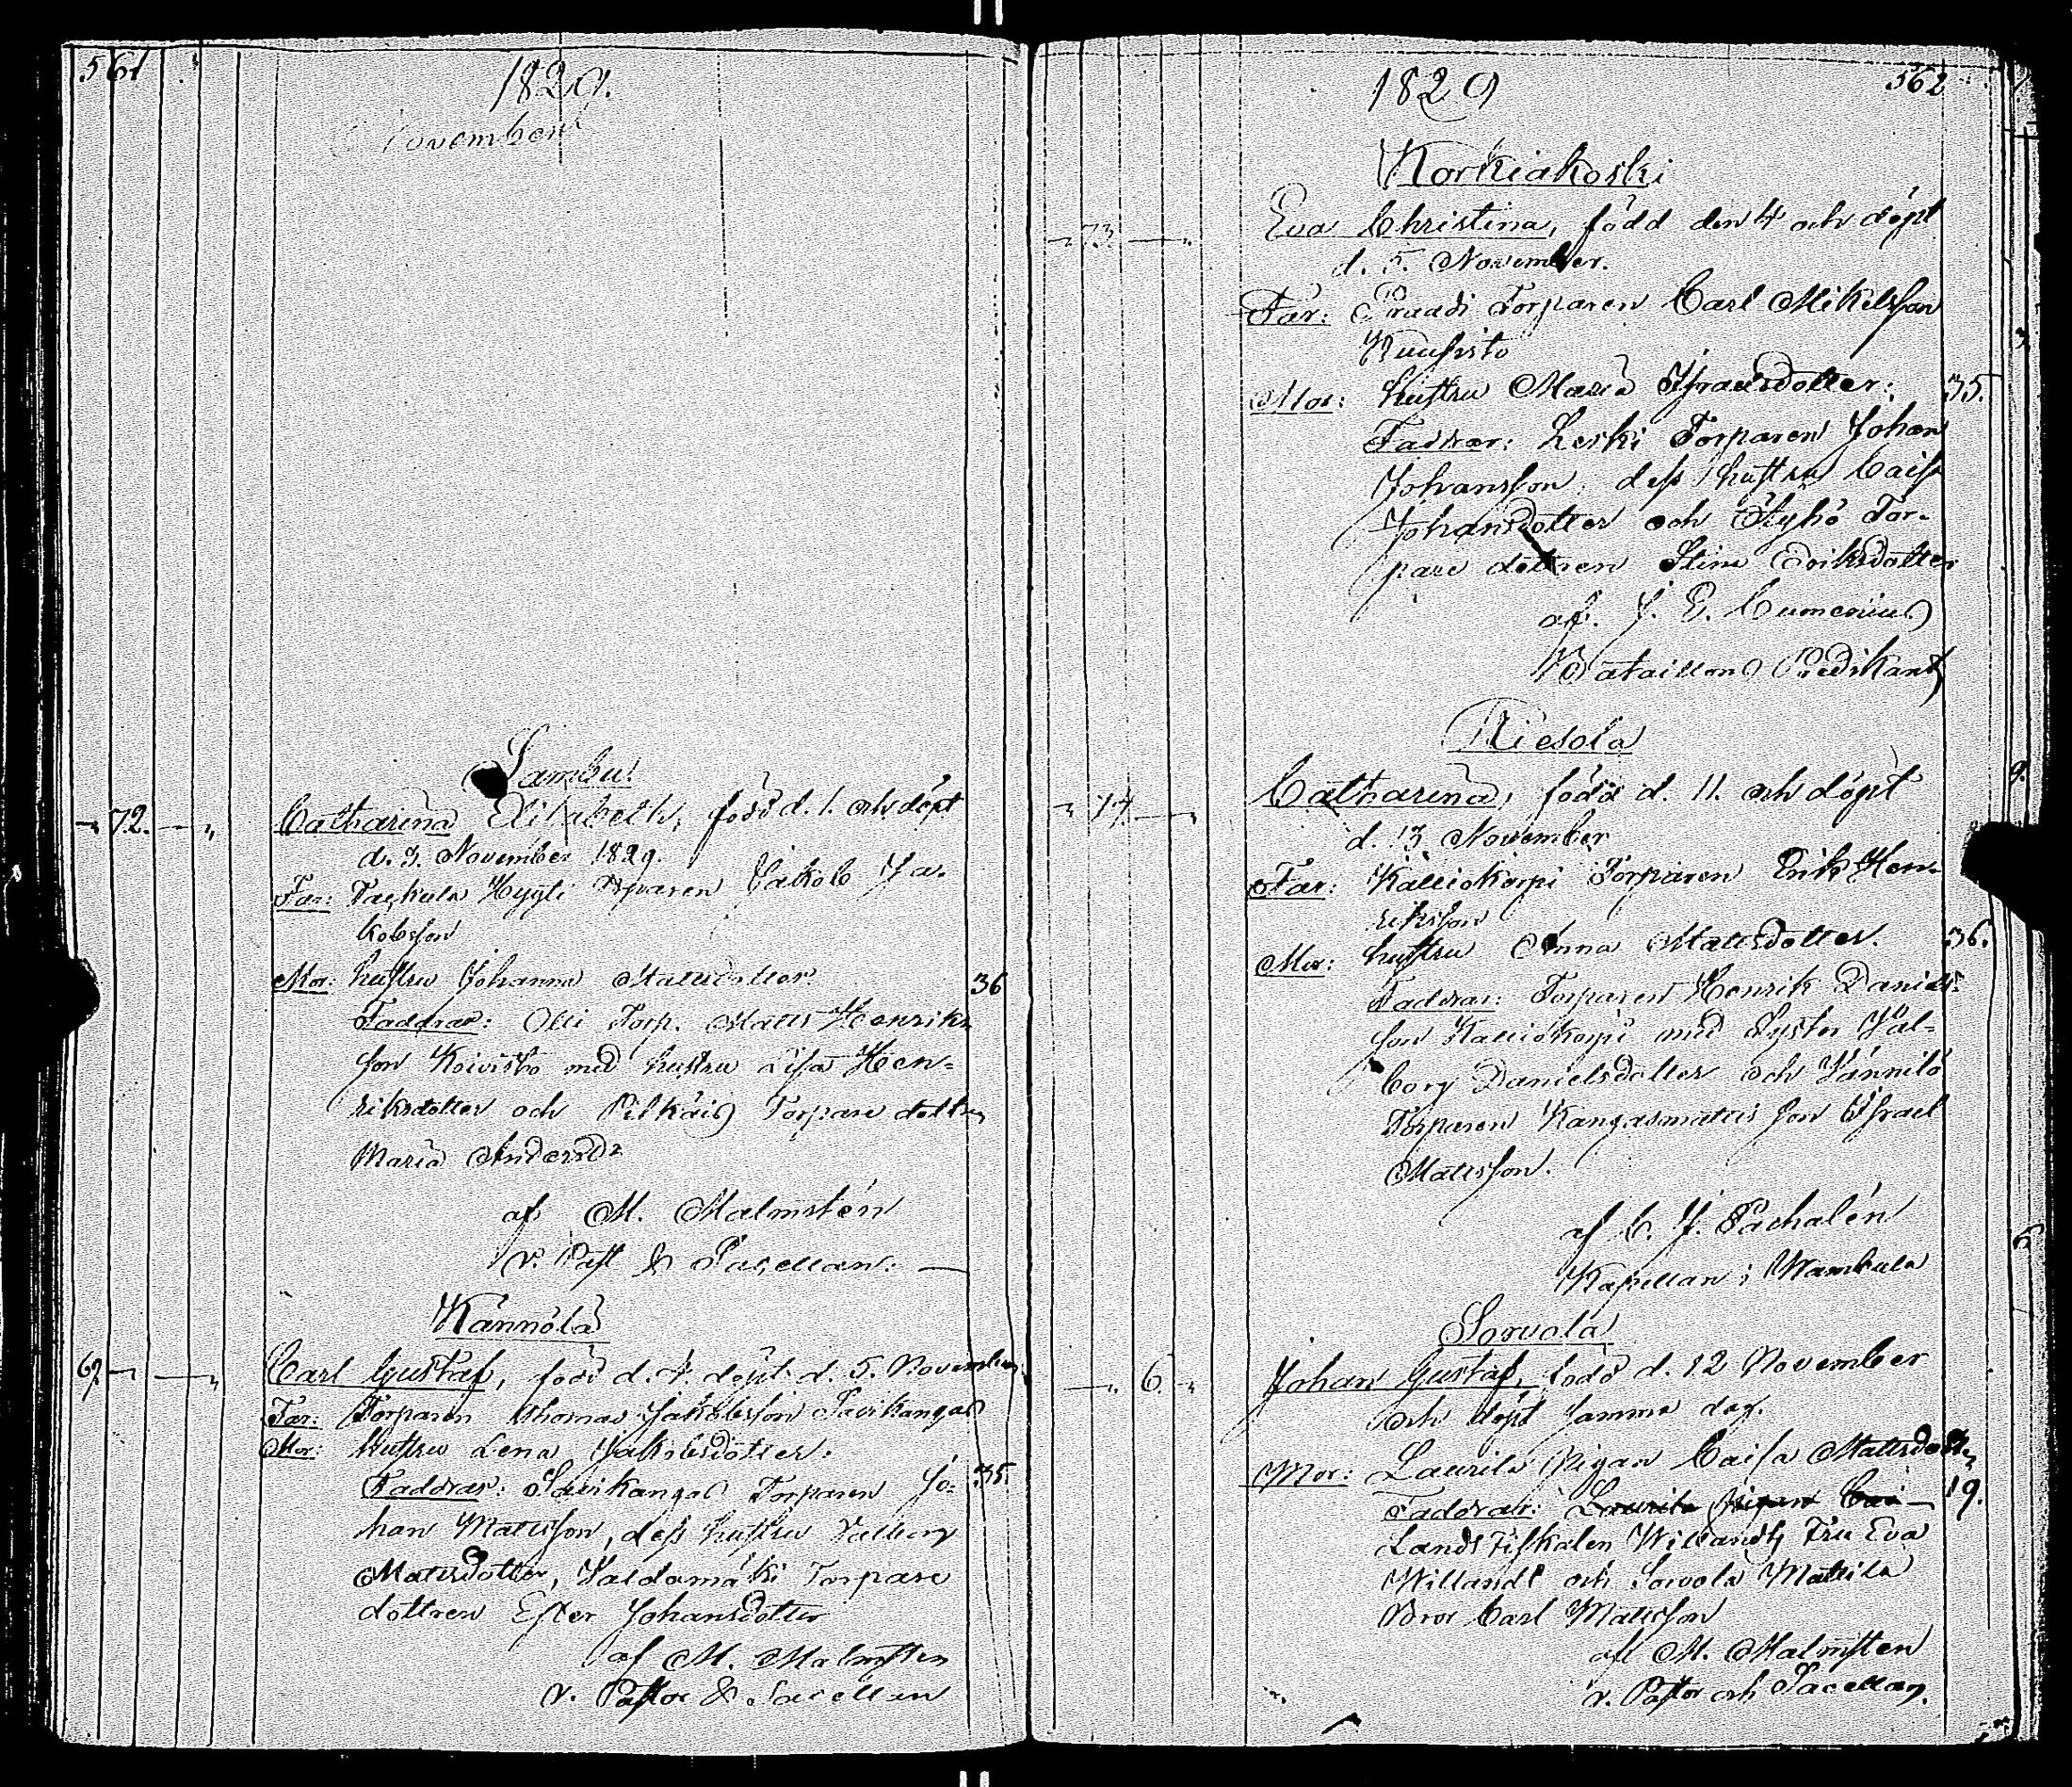 561
1829.
November
Sambu.
72. Catharina Elisabeth, född d. 1. och döpt
d. 3. November 1829.
Far: Hygli Jakob Ja-
kobsson
Mor: hustru Johanna Mattsdotter. 36
Faddrar: Olli Torp. Matts Henriks
son Koivisto med hustru Lisa Hen-
riksdotter och Torpare dottren
Maria Andersdr
af M. Malmstén
v. Past & Sacellan.
Kännölä
69. Carl Gustaf, född d. 4. döpt d. 5. November
Far: Torparen Thomas Jakobsson Savikangas
Mor: hustru Lena Jakobsdotter.
Faddrar: Savikangas Torparen Jo- 35.
han Mattsson, dess hustru Valborg
Mattsdotter, Torpare
dottren Ester Johansdotter
af M. Malmsten
v. Pastor & Sacellan
1829
562
Korkiakoski
73. Eva Christina, född den 4 och döpt
d. 5. November.
Far: Torparen Carl Mikelsson
Kuusisto
Mor: hustru Maria Israelsdotter. 35.
Faddrar: Torparen Johan
Johansson, dess hustru Caisa
Johansdotter och Tor-
pare dottren Stina Eriksdotter
af. J. E. Cumenius
Bataillons Predikant
Riesola
74. Catharina, född d. 11. och döpt
d. 13 November
Far: Kalliokorpi Torparen Erik Hen-
riksson
Mor: hustru Anna Mattsdotter. 36.
Faddrar: Torparen Henrik Daniels-
son Kalliokorpi med Syster Val-
borg Danielsdotter och Vännilä
Torparen Kangasmattis son Israel
Mattsson.
af C. J. Pachalén
Kapellan i Wambula
Sorvola
6. Johan Gustaf, född d. 12 November
och döpt samma dag.
Mor: Laurila Pigan Caisa Mattsdottr
Faddrar: Laurila Pigan Cai 19.
Lands Fiskalen Willandts Fru Eva
Willandt och Sorvola Mattila
Bror Carl Mattsson
af M. Malmsten
v. Pastor och Sacellan.